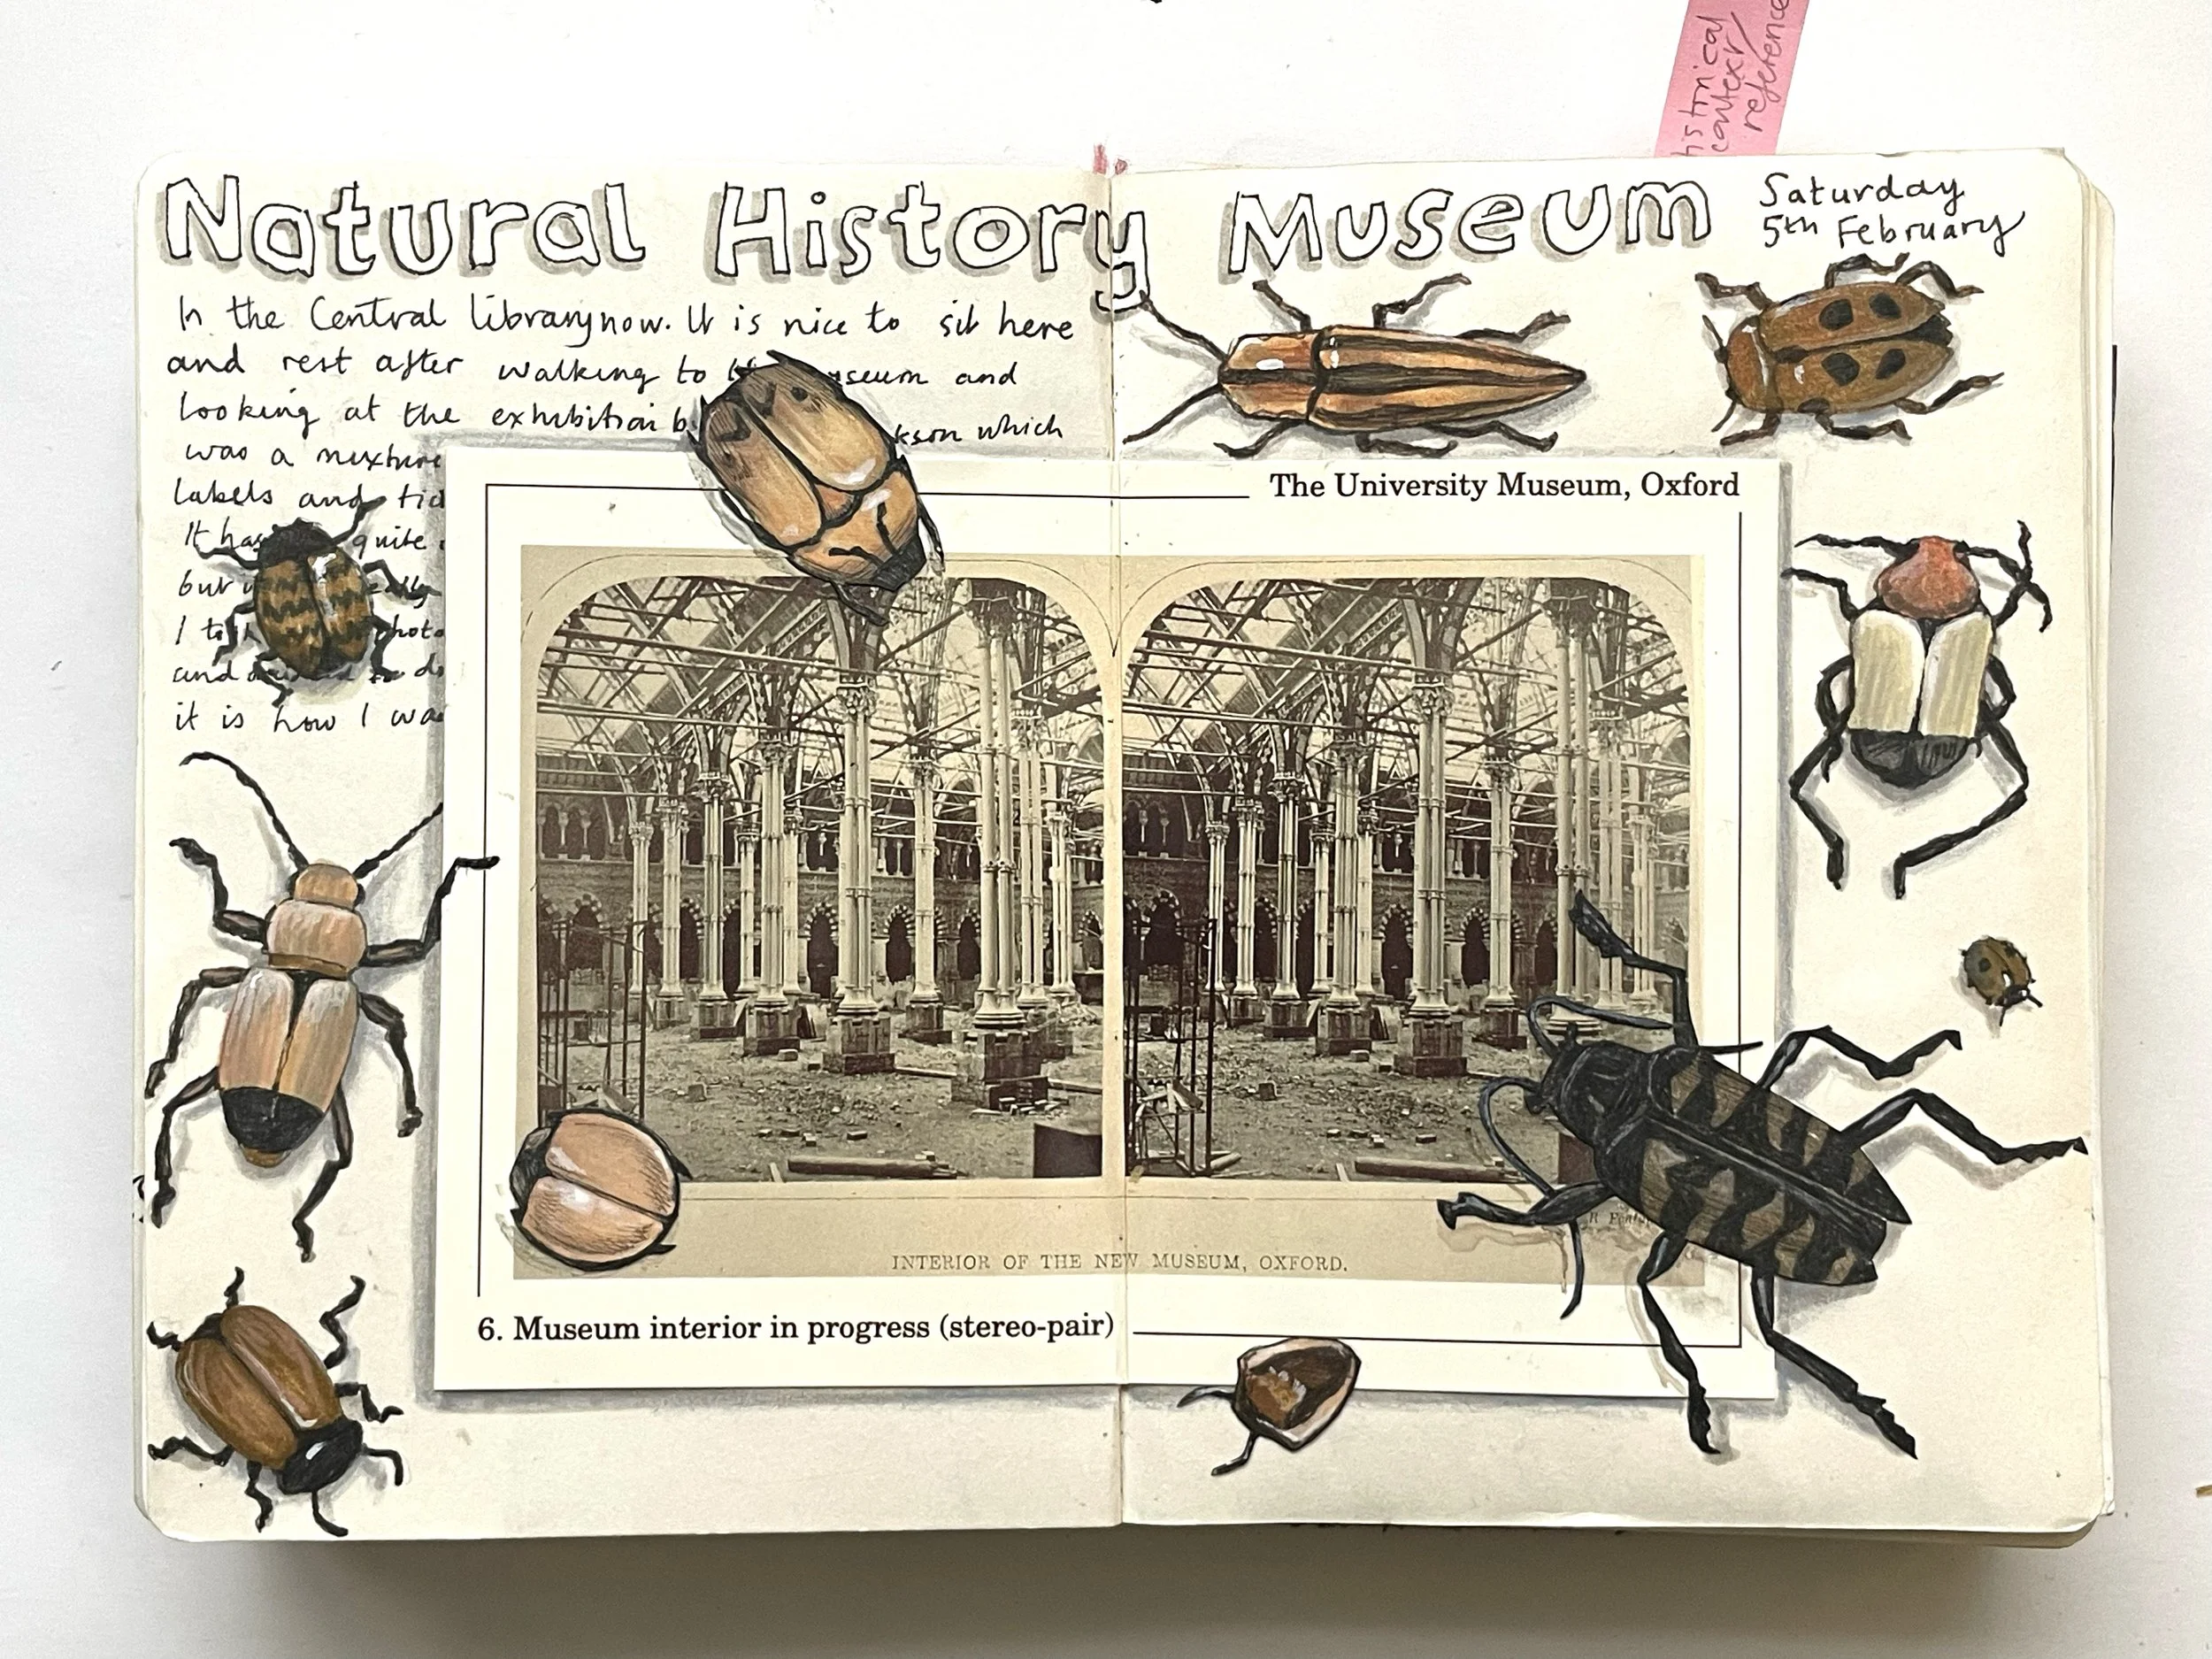 historical
context/
reference
Natural History Museum
Saturday
5th February
In the Central library now. It is nice to sit here
and rest after walking to museum and
looking at the exhibition which
was a mixture
labels and
It has quite
but
I
and
it is how I
The University Museum, Oxford
INTERIOR OF THE NEW MUSEUM, OXFORD.
6. Museum interior in progress (stereo-pair)